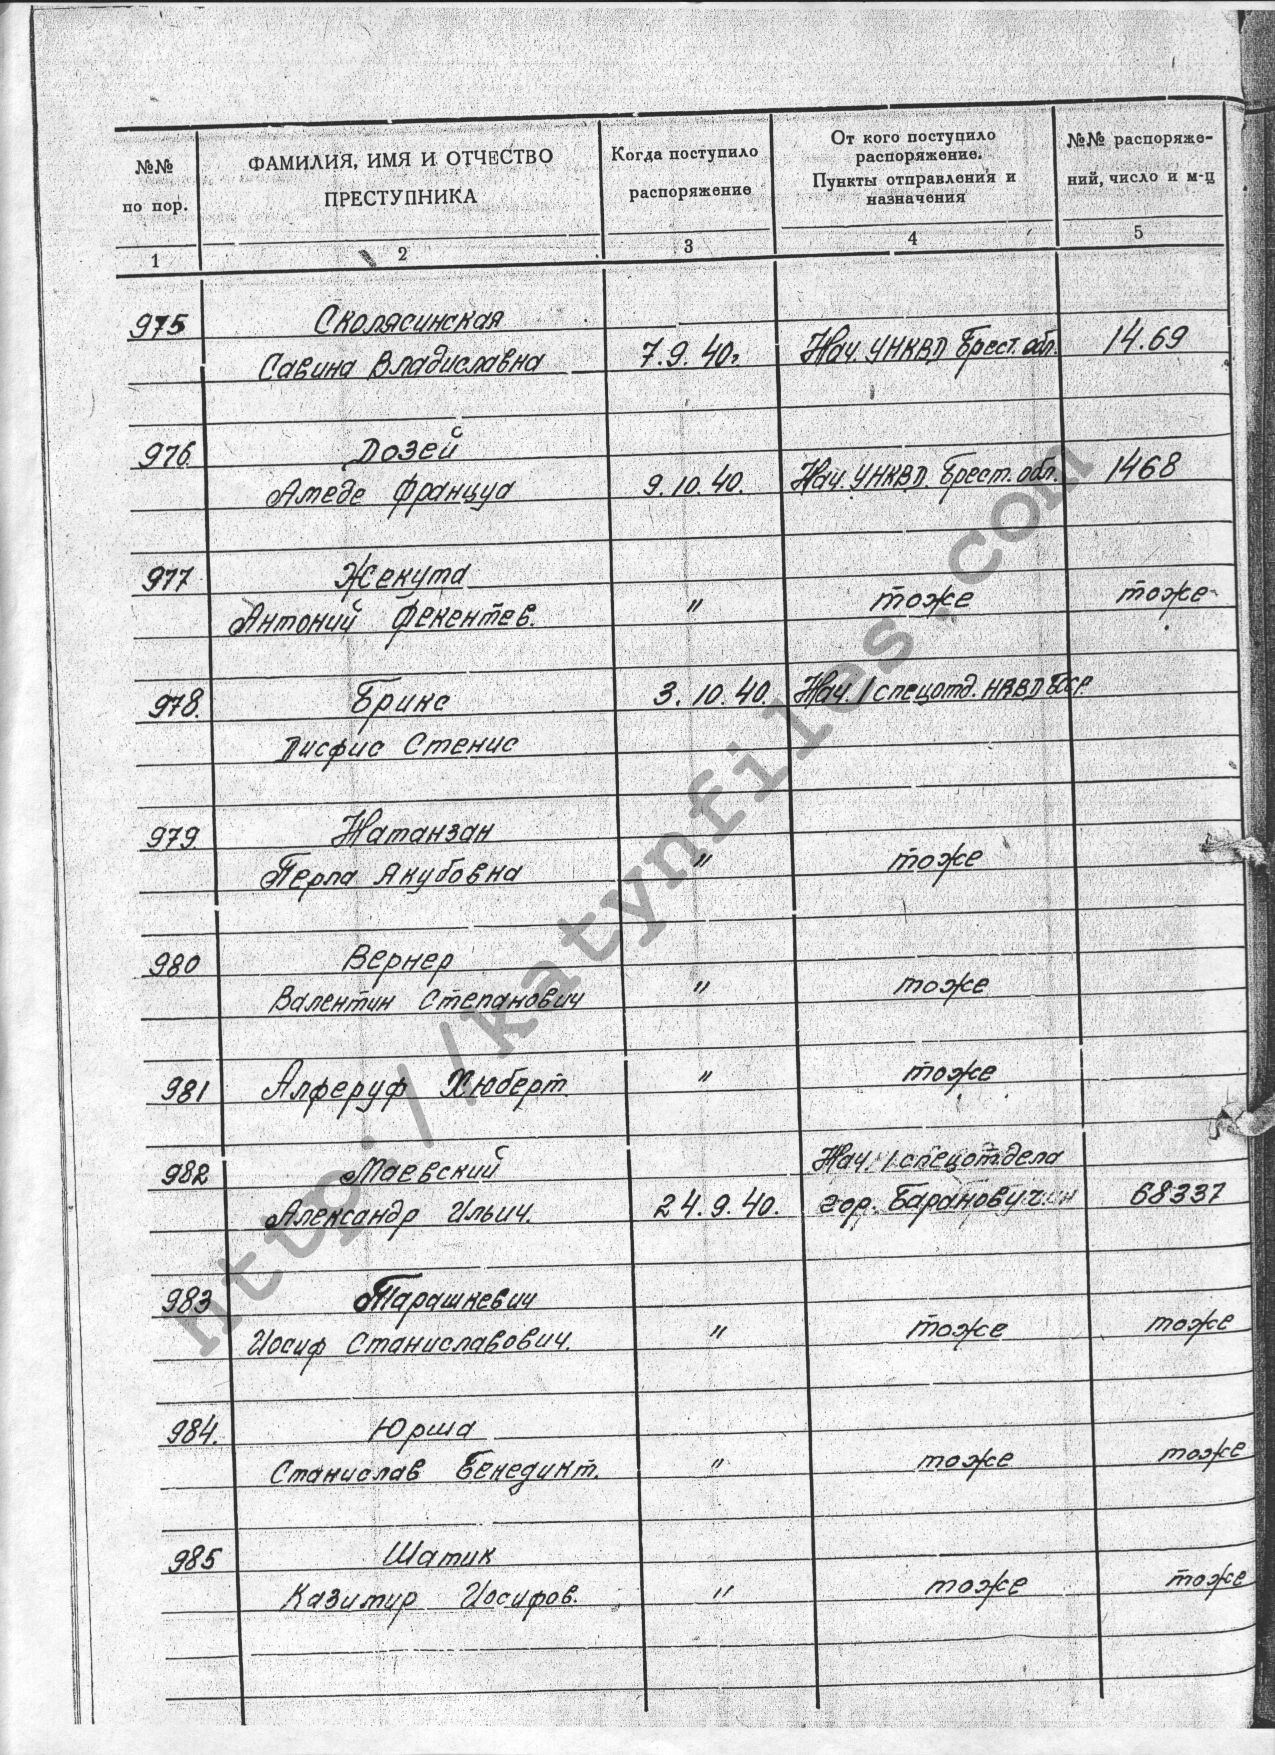 №№ по пор.
ФАМИЛИЯ, ИМЯ И ОТЧЕСТВО ПРЕСТУПНИКА
Когда поступило распоряжение
От кого поступило распоряжение. Пункты отправления и назначения
№№ распоряжений, число и м-ц
1 2 3 4 5
975 Сколясинская
Савина Владиславна 7.9.40г. Нач УНКВД Брест. обл. 14.69
976 Дозей
Амеде Француа 9.10.40. Нач. УНКВД. Брест. обл. 1468
977 Жекута
Антоний Фекентев. " тоже тоже
978. Брикс 3.10.40. Нач. 1 спецотд. НКВД БССР
Писфис Стенис
979 Натанзан
Перла Якубовна " тоже
980 Вернер
Валентин Степанович " тоже
981 Алферуф Хюберт " тоже
982 Маевский Нач. 1 спецотдела
Александр Ильич. 24.9.40. гор. Баранович 68337
983 Тарашкевич
Иосиф Станиславович. " тоже тоже
984. Юрша
Станислав Бенедикт. " тоже тоже
985 Шатик
Казимир Иосифов. " тоже тоже
http://katynfiles.com